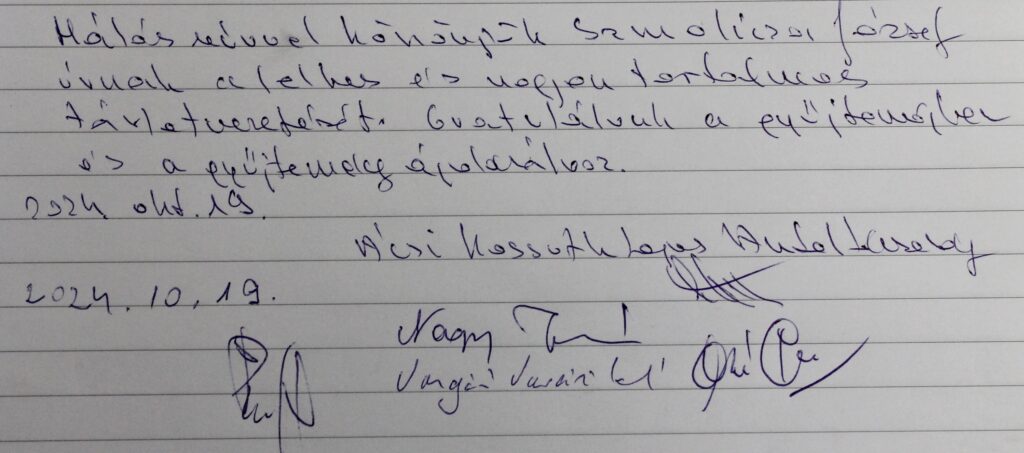 Hálás szívvel köszönjük Szmolicza József
úrnak a lelkes és nagyon tartalmas
tárlatvezetését. Gratulálunk a gyűjteményhez
és a gyűjtemény ápolásához.
2024 okt. 19.
Ácsi Kossuth Lajos
2024. 10. 19.
Nagy